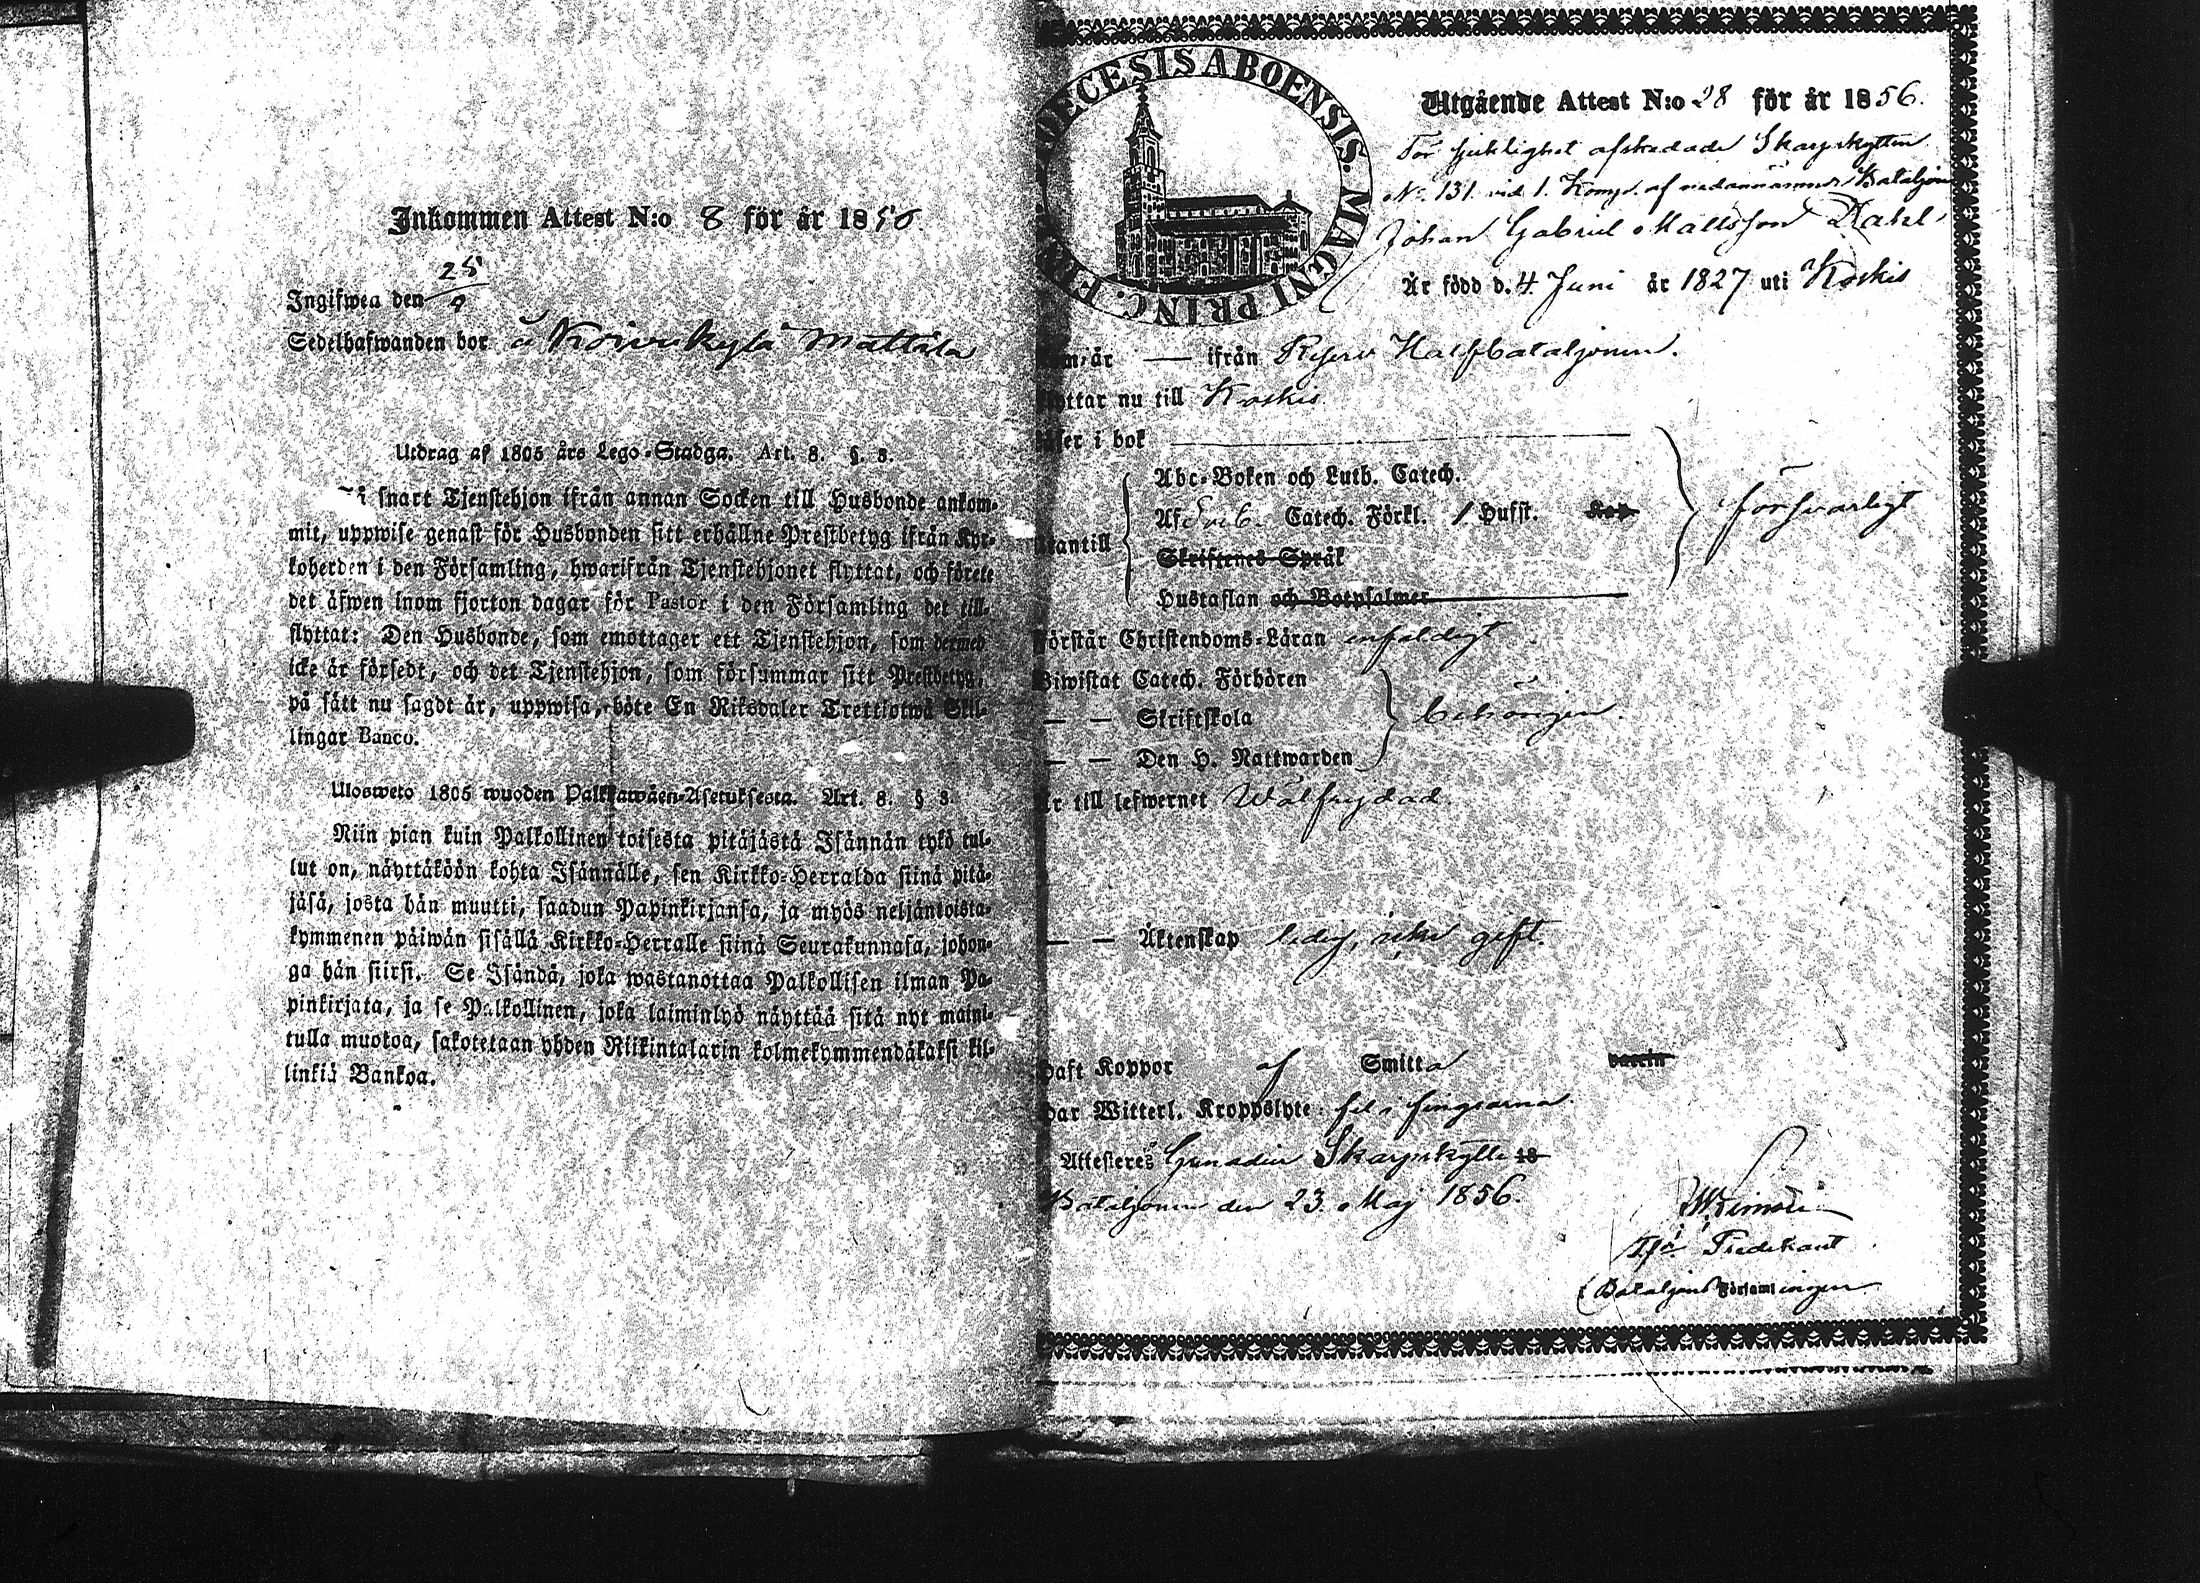 Inkommen Attest N:o 8 för år 1856.
Ingifwen den 25/9
Sedelhafwanden bor å Koivukylä Mattila
Utdrag af 1805 års Lego-Stadga. Art. 8. §. 3.
Så snart Tjenstehjon ifrån annan Socken till Husbonde ankom-
mit, uppwise genast för Husbonden sitt erhållne Prestbetyg ifrån Kyr-
koherden i den Församling, hwarifrån Tjenstehjonet flyttat, och förete
det äfwen inom fjorton dagar för Pastor i den Församling det till-
flyttat: Den Husbonde, som emottager ett Tjenstehjon, som dermed
icke är försedt, och det Tjenstehjon, som försummar sitt Prestbetyg,
på sätt nu sagdt är, uppwisa, böte En Riksdaler Trettiotwå Skil-
lingar Banco.
Ulosweto 1805 wuoden Palkkawäen-Asetuksesta. Art. 8. § 3.
Niin pian kuin Palkollinen toisesta pitäjästä Isännän tykö tul-
lut on, näyttäköön kohta Isännälle, sen Kirkko-Herralda siinä pitä-
jäsä, josta hän muutti, saadun Papinkirjansa, ja myös neljäntoista-
kymmenen päiwän sisällä Kirkko-Herralle siinä Seurakunnasa, johon-
ga hän siirsi. Se Isändä, joka wastanottaa Palkollisen ilman Pa-
pinkirjata, ja se Palkollinen, joka laiminlyö näyttää sitä nyt maini-
tulla muotoa, sakotetaan yhden Riikintalarin kolmekymmendäkaksi kil-
linkiä Bankoa.
DIOECESIS ABOENSIS. MAGNI PRINC.
Utgående Attest N:o 28 för år 1856.
För sjuklighet afskedade Skarpskytten
No. 131 vid 1. Komp. af nedannämnde Bataljon
Johan Gabriel Mattsson
Är född d. 4 Juni år 1827 uti Koskis
— ifrån Reserv Halfbataljonen.
flyttar nu till Koskis
läser i bok
Abc-Boken och Luth. Catech.
Af Sveb. Catech. Förkl. / Husst.
utantill
försvarligt
Skriftenes Språk
Hustaflan och Botpsalmer
Förstår Christendoms-Läran enfaldigt
Biwistat Catech. Förhören
— — Skriftskola
behörigen.
— — Den H. Nattwarden
Är till lefwernet Wälfrejdad
— — Äktenskap ledig, icke gift.
Haft Koppor af Smitta
Har Witterl. Kroppslyte fel i fingrarna.
Attesteres Grenadier Skarpskytte 18
Bataljonen den 23 Maj 1856.
Predikant
Bataljons Församlingen